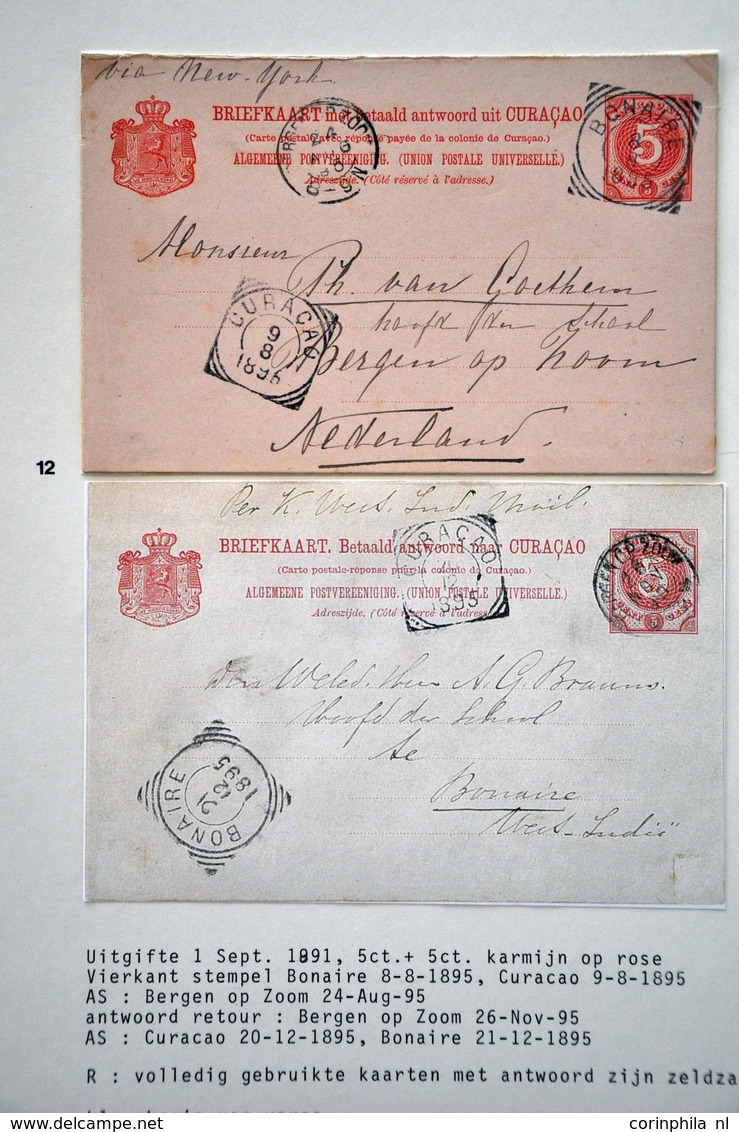 via New-York
BRIEFKAART met betaald antwoord uit CURAÇAO
(Carte postale avec réponse payée de la colonie de Curaçao.)
ALGEMEENE POSTVEREENIGING. (UNION POSTALE UNIVERSELLE.)
Adreszijde. (Côté réservé à l'adresse.)
BONAIRE
5
Monsieur
Ph. van Goethem
hoofd der school
Bergen op Zoom
Nederland.
CURAÇAO
9
8
1895
12
Per K. West. Ind. Mail.
BRIEFKAART. Betaald antwoord naar CURAÇAO
(Carte postale-réponse pour la colonie de Curaçao.)
ALGEMEENE POSTVEREENIGING. (UNION POSTALE UNIVERSELLE.)
Adreszijde. (Côté réservé à l'adresse.)
CURAÇAO
12
1895
5
Den Weled. Heer A. G. Brauns.
Hoofd der School
te
Bonaire
West-Indië
BONAIRE
21
12
1895
Uitgifte 1 Sept. 1891, 5ct.+ 5ct. karmijn op rose
Vierkant stempel Bonaire 8-8-1895, Curacao 9-8-1895
AS : Bergen op Zoom 24-Aug-95
antwoord retour : Bergen op Zoom 26-Nov-95
AS : Curacao 20-12-1895, Bonaire 21-12-1895
R : volledig gebruikte kaarten met antwoord zijn zeldza
corinphila nl